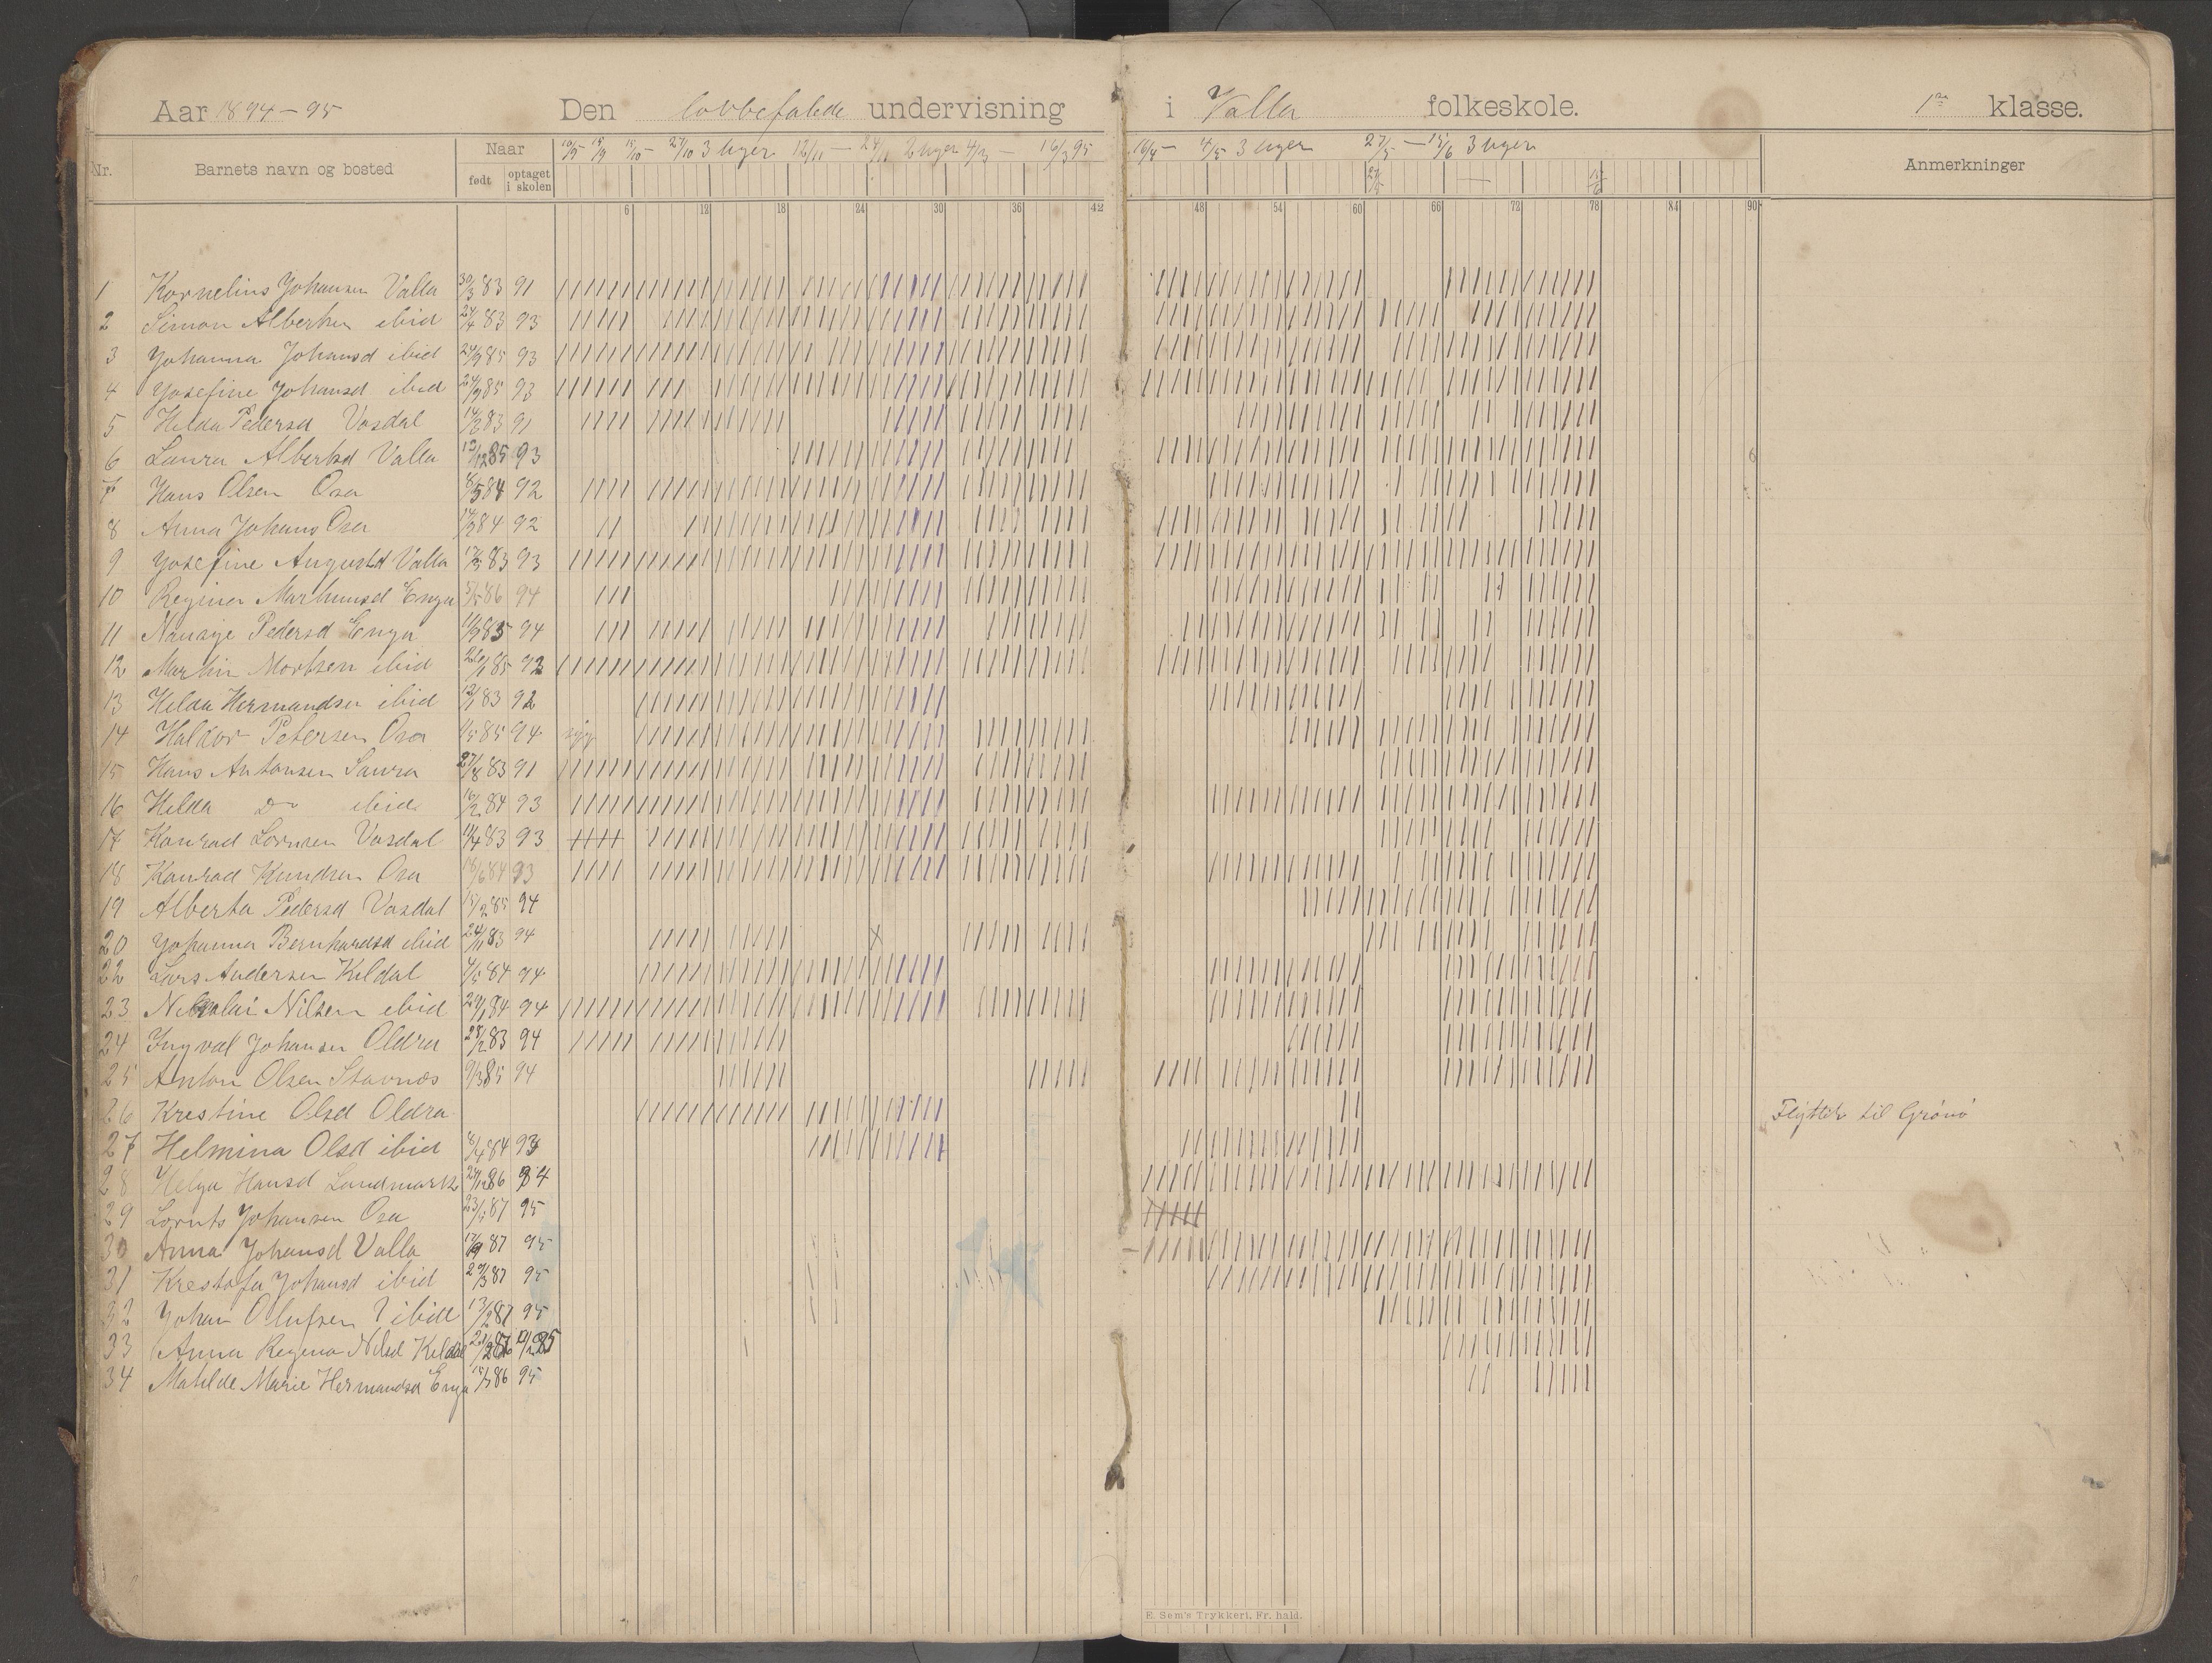 Aar 1894-95 Den lovbefalede undervisning i Valla folkeskole. 1ste klasse.
Nr. Barnets navn og bosted Naar født optaget i skolen 3 uger 12/11 — 24/11 2 uger 4/3 — 16/3 95 3 uger 27/5 — 15/6 3 uger Anmerkninger
27/5 — 15/6
6 12 18 24 30 36 42 48 54 60 66 72 78 84 90
1 Kornelius Johansen Valla 30/3 83 91
2 Simon Albertsen ibid 24/4 83 93
3 Johanna Johansd ibid 24/9 85 93
4 Josefine Johansd ibid 24/9 85 93
5 Hilda Pedersd Vasdal 14/2 83 91
6 Laura Albertsd Valla 13/12 85 93
7 Hans Olsen Osa 8/5 84 92
8 Anna Johans Osa 84 92
9 Josefine Augustd Valla 83 93
10 Regine Marthinusd Enga 86 94
11 Pedersd Enga 11/9 85 94
12 Martin Mortsen ibid 85 92
13 Helda Hermandsen ibid 83 92
14 Haldor Petersen Osa 85 94 syg
15 Hans Antonsen Saura 27/8 83 91
16 Helda Do ibid 16/2 84 93
17 Konrad Lornsen Vasdal 83 93
18 Konrad Knudsen Osa 18/6 84 93
19 Alberta Pedersd Vasdal 15/2 85 94
20 Johanna Bernhardsd ibid 24/11 83 94
22 Lars Andersen Kildal 84 94
23 Nikolai Nilsen ibid 84 94
24 Ingval Johansen Oldra 28/2 83 94
25 Anton Olsen Stavnes 9/3 85 94
26 Krestine Olsd Oldra Flytter til Grönö
27 Helmina Olsd ibid 84 93
28 Helga Hansd Landmark 86 94
29 Lornts Johansen Osa 87 95
30 Anna Johansd Valla 87 95
31 Krestofa Johansd ibid 29/3 87 95
32 Johan Olufsen ibid 13/2 87 95
33 Anna Regina Nilsd Kildal
34 Matilde Marie Hermandsd Enga 86 95
E. Sem's Trykkeri, Fr. hald.